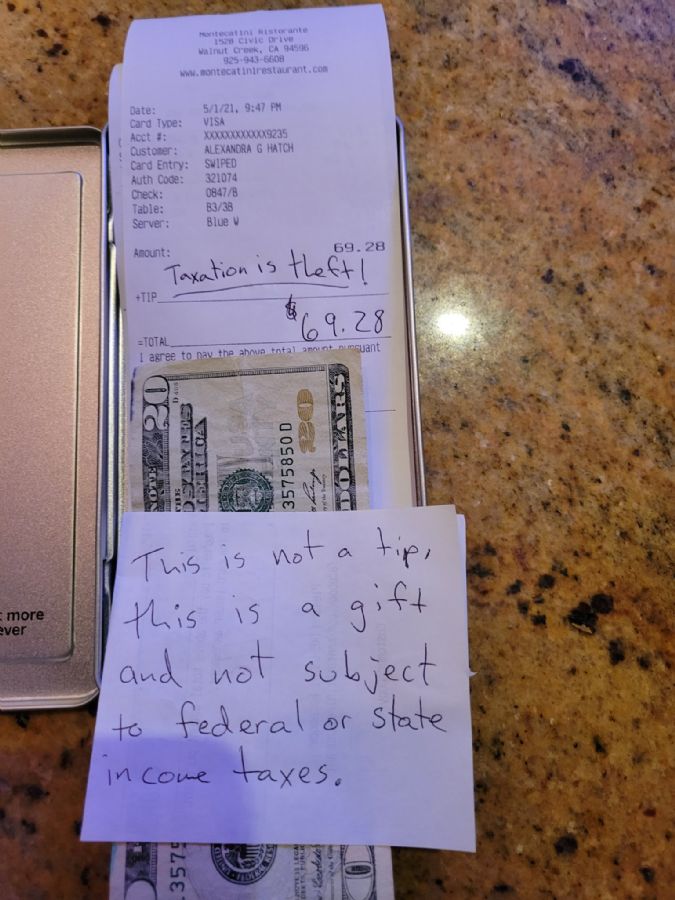 Montecatini Ristorante
1528 Civic Drive
Walnut Creek, CA 94596
925-943-6608
www.montecatinirestaurant.com
Date: 5/1/21, 9:47 PM
Card Type: VISA
Acct #: XXXXXXXXXXXX9235
Customer: ALEXANDRA G HATCH
Card Entry: SWIPED
Auth Code: 321074
Check: 0847/B
Table: B3/38
Server: Blue W
Amount: 69.28
Taxation is theft!
+TIP
$69.28
=TOTAL
I agree to pay the above total amount pursuant
20
NOTE
THE
AMERICA
3575850 D
20
DOLLARS
This is not a tip,
this is a gift
and not subject
to federal or state
income taxes.
more
ever
3575